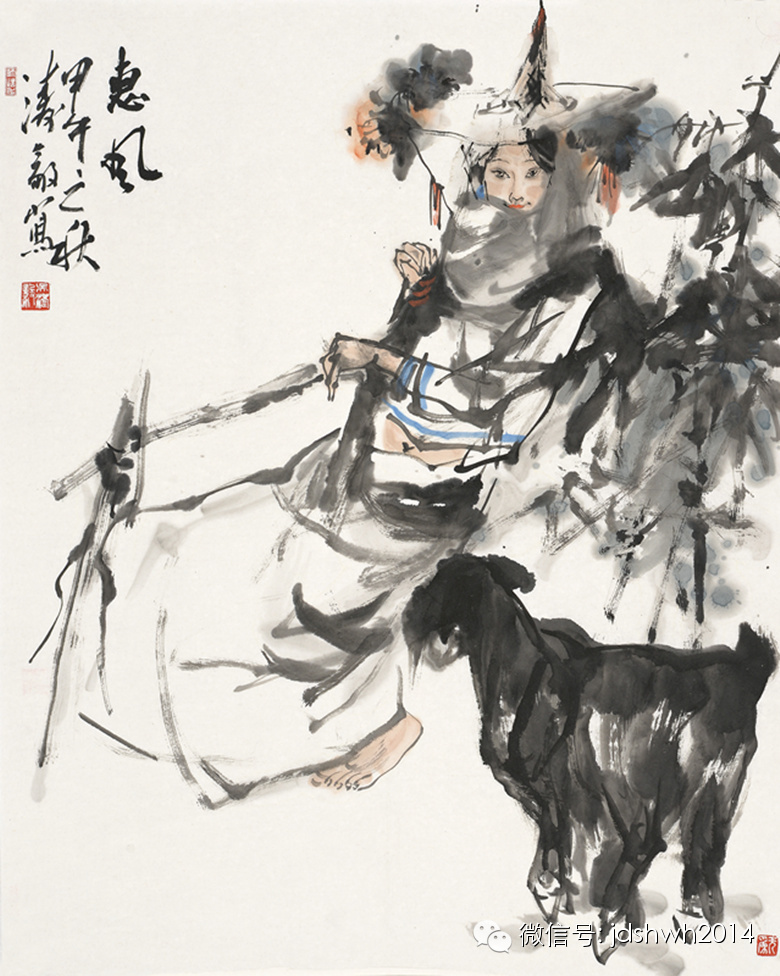 惠风
甲午之秋
涛毅写
微信号: jdshwh2014